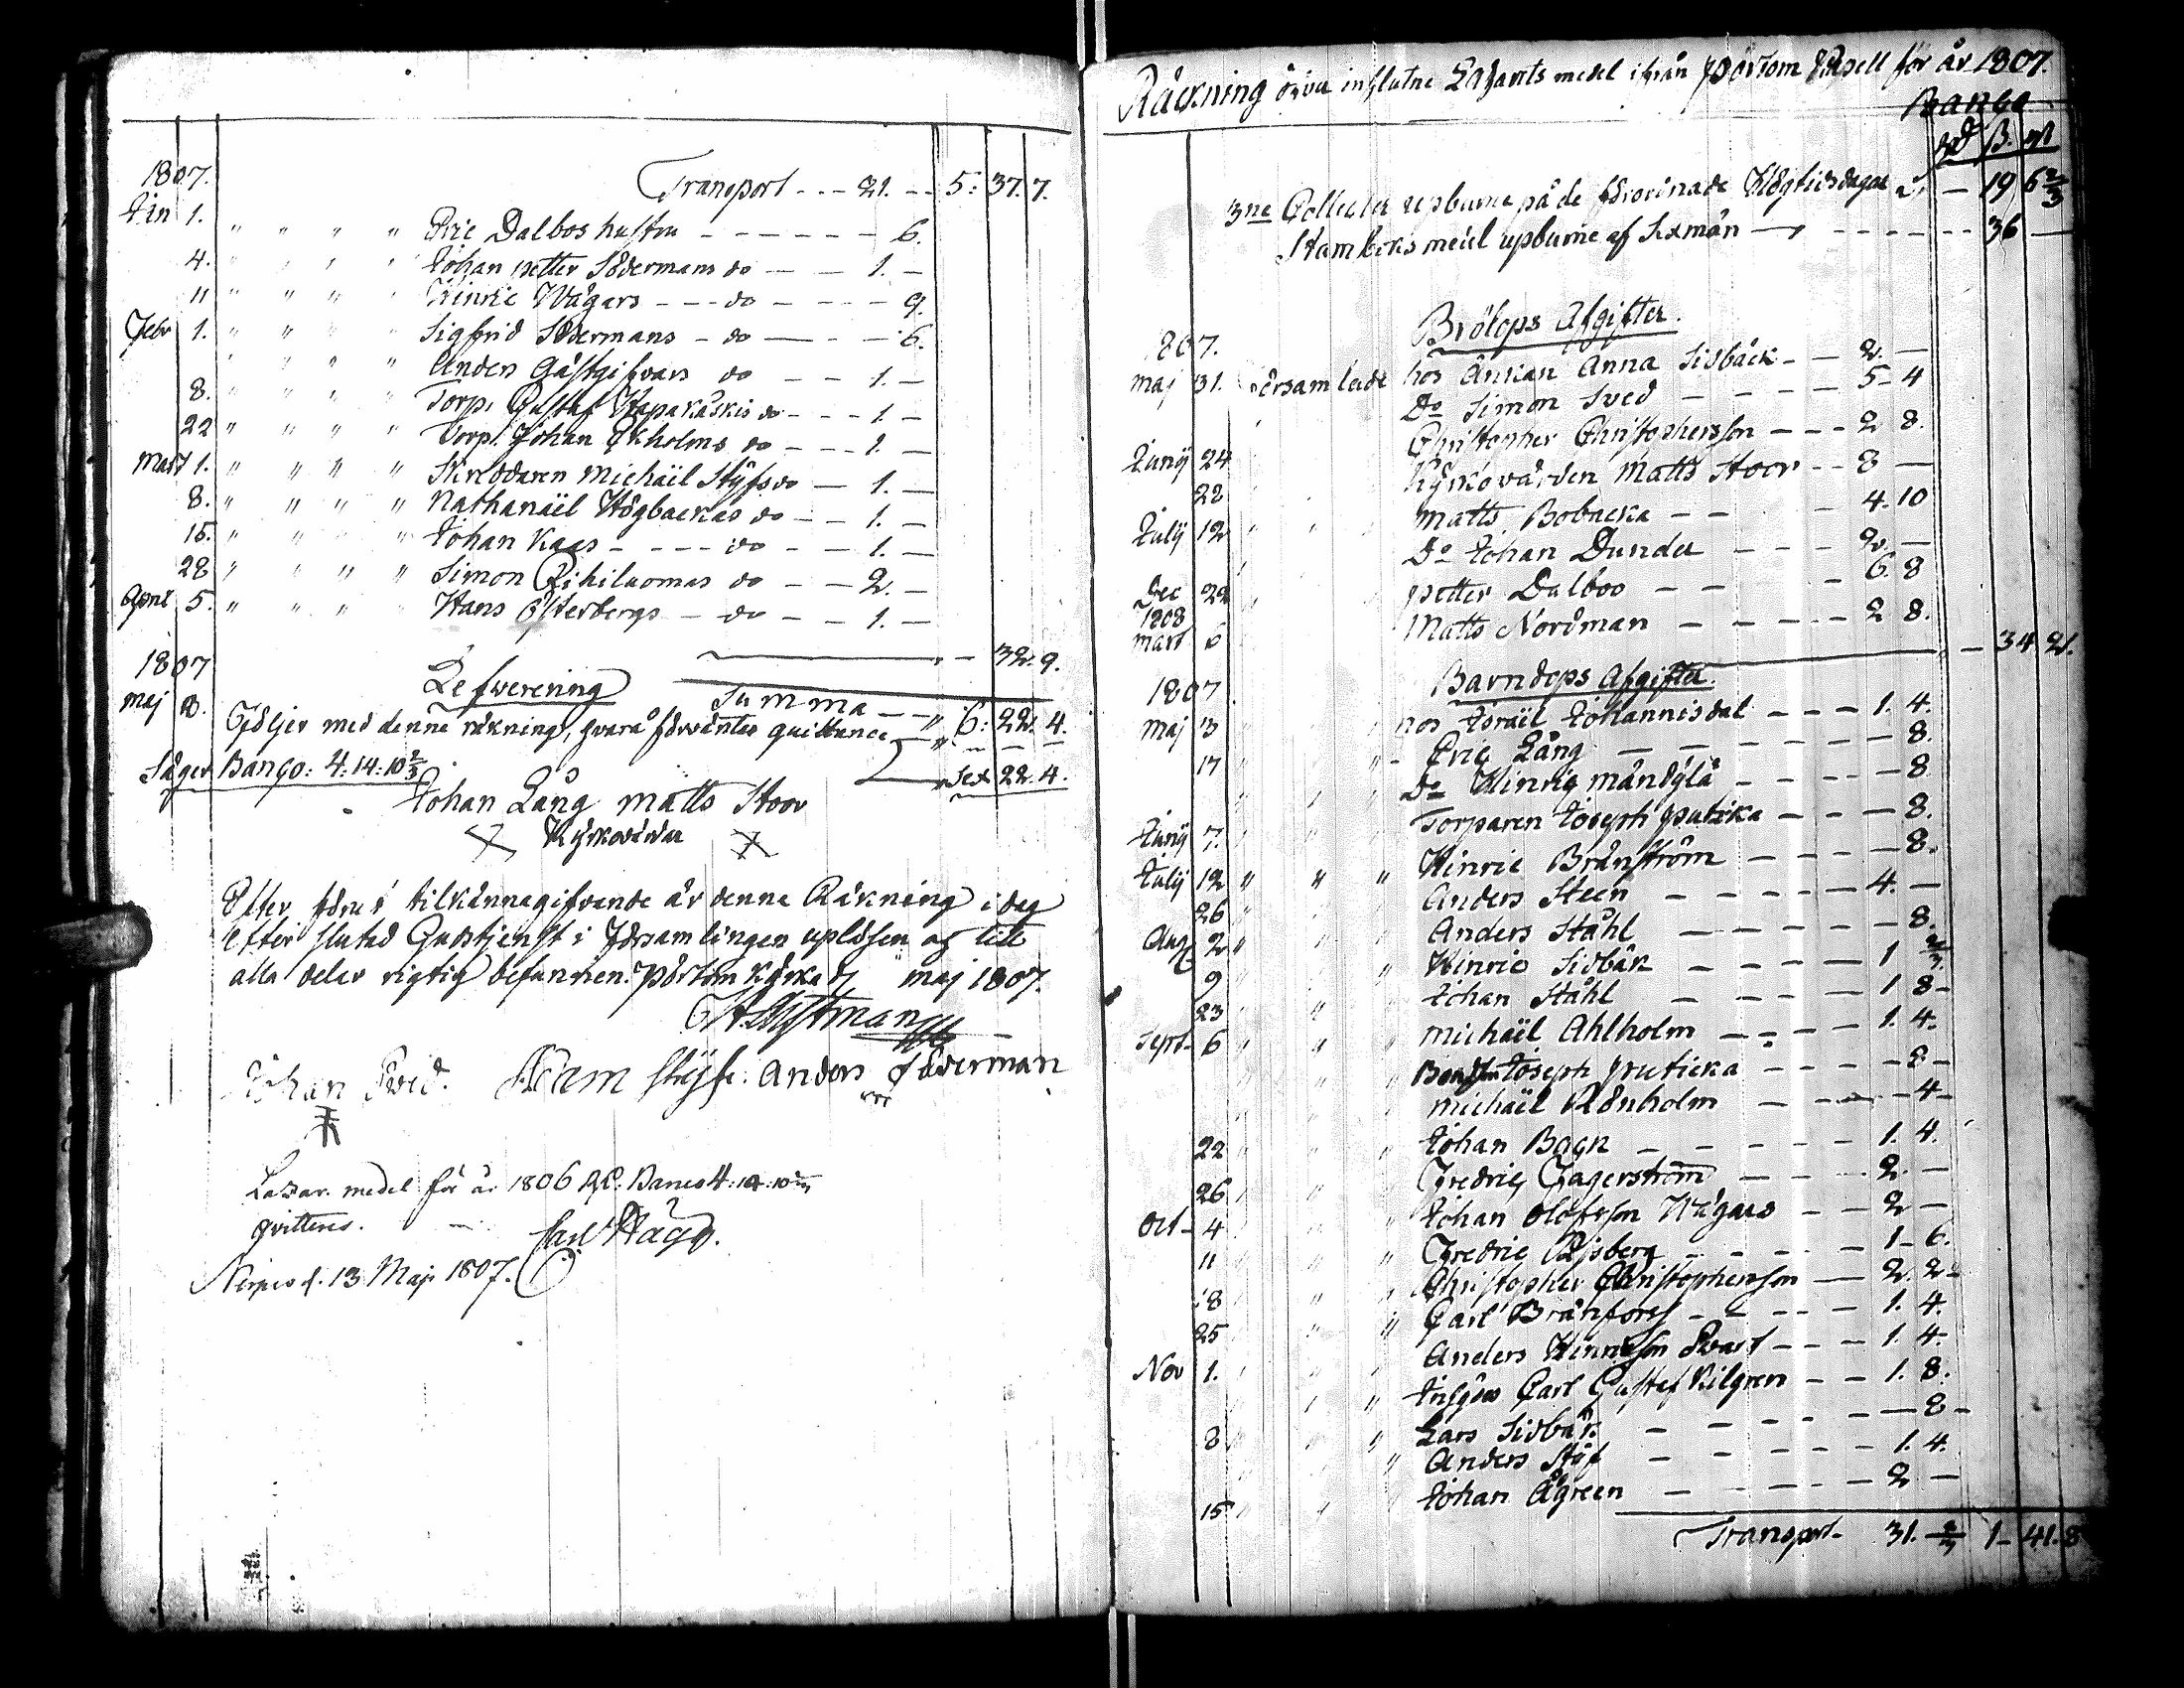 1807. Transport - - - 21. - - 5: 37. 7.
Jan 1. " " " " Eric Dalbos hustru - - - - - - 6.
4. " " " " Johan Petter Södermans do - - 1. -
11 " " " " Hinric Wägars - - - do - - - - 9.
Febr 1. " " " " Sigfrid Södermans - do - - - 6.
" " " Anders Gästgifvars do - - 1. -
8. " " " " Torp. Gustaf do - - - 1. -
22 " " " " Torp. Johan Ekholms do - - - 1. -
Mart 1. " " " " Skreddaren Michäel Styfs do - 1. -
8. " " " " Nathanäel Högbackas do - - 1. -
15. " " " " Johan Kaas - - - - do - - 1. -
28 " " " " Simon Pihiluomas do - - 2. -
April 5. " " " " Hans Österbergs - do - - 1. -
- 32. 9.
1807 Lefwerering Summa - - " 6: 22. 4.
Maj 8. Följer med denne räkning, hvarå förväntes quittence - " - - -
Säger Banco: 4: 14: 10 2/3 Sex 22. 4.
Johan Lång Matts Stoor
Kyrkovärdar
Efter förut tilkännagifvande är denne Räkning i dag
efter slutad Gudstjenst i Församlingen uplösen och till
alla delar rigtig befunnen. Pörtom Kyrka d. Maj 1807.
Johan Sved. Adam Styf. Anders Söderman
Lazar. medel för år 1806 Banco 4: 14: 10 2/3
qvitteras. Carl Hägg.
Nerpes d. 13 Maji 1807.
Räckning öfver influtne Lazaretts medel ifrån Pörtom Kapell för år 1807.
Banco
Rd ß. rst
3ne Collecter upburne på de förordnade Högtidsdagar - 19 6 2/3
Stamboks medel upburne af Sexmän - - - - - - 36 -
Brölops Afgifter.
1807.
Maj 31. Församlade hos Änkan Anna Sidbäck - - 2. -
Do Simon Sved - - - - 5 - 4
Christopher Christophersson - - - 2 8.
Junij 24 Kyrkovärden Matts Stoor - - 8 -
28 Matts Bobacka - - - 4. 10
Julij 12 " " " Do Johan Dunder - - - 2. -
Dec 28 Petter Dalbo - - - 6. 8
1808
Mart 6 Matts Nordman - - - - - 2 8.
- 34 2.
1807 Barndops Afgifter.
Maj 3 hos Israël Johannisdal - - - 1. 4.
17 " Eric Lång - - - - - - 8.
" " " Do Hinric Mändylä - - - - 8
Junij 7. " " " Torparen Joseph Puticka - - - 8.
Julij 12 " " " Hinric Brånström - - - - 8.
26 " Anders Steen - - - - - 4. -
Aug 2 " Anders Ståhl - - - - - - 8.
9 " Hinric Sidbäk - - - - 1 2/3.
23 " Johan Ståhl - - - - 1 8 -
Sept - 6 " " " Michäel Ahlholm - - - - 1. 4.
" " " Joseph Puticka - - - - 8 -
Michäel Rönholm - - - - 4 -
22 " " " Johan Back - - - - - 1. 4.
26 " " Fredric Fagerström - - - 2. -
Oct - 4 " Johan Olofsson Wägars - - 2 -
11 " " Fredric Risberg - - - - 1 - 6.
18 " " " Christopher Christophersson - 2. 2 -
25 " " Carl Brånfors - - - - 1. 4.
Nov 1. " " Anders Hinricsson Svart - - - 1. 4 -
" " " Carl Gustaf Kilgren - - 1. 8.
8 " " " Lars Sidbäk - - - - - 8 -
" Anders Styf - - - - - 1. 4.
15 " " " Johan Ågreen - - - - - 2 -
Transport - 31. 2/3 1 - 41. 8